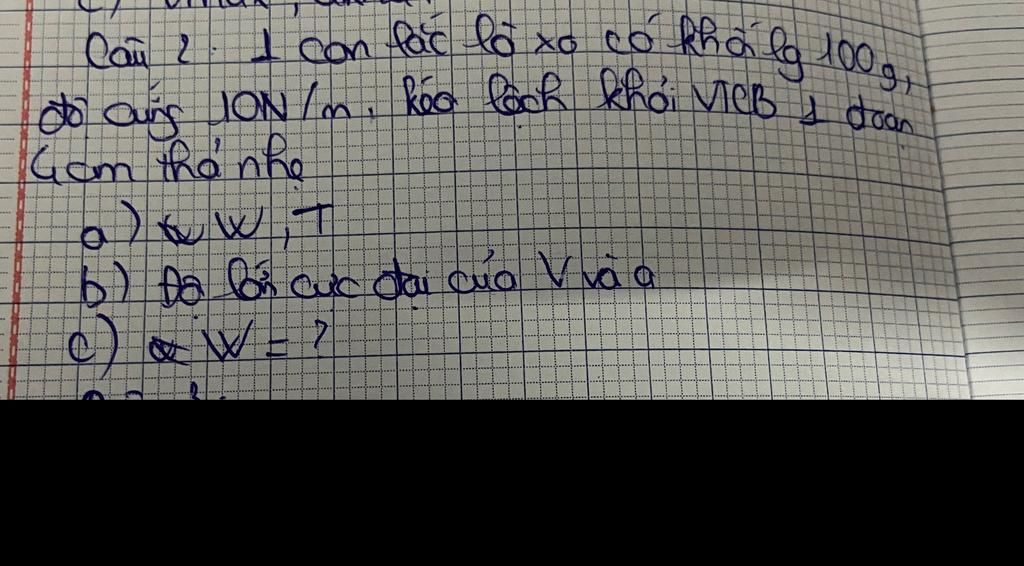 Câu 2: 1 con lắc lò xo có khối lg 100g,
độ cứng 10N/m, kéo lệch khỏi VTCB 1 đoạn
4cm thả nhẹ
a) W, T
b) Độ lớn cực đại của V và a
c) W = ?